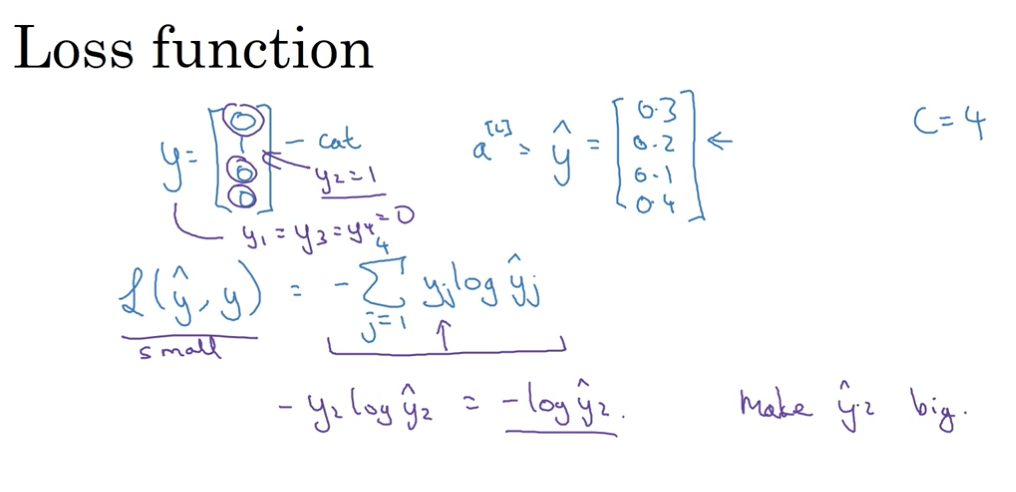 Loss function
y = [0 1 0 0] - cat
y₂=1
y₁ = y₃ = y₄ = 0
a^[L] = ŷ = [0.3 0.2 0.1 0.4] ←
C=4
L(ŷ, y) = - Σ_{j=1}^{4} yⱼ log ŷⱼ
small
- y₂ log ŷ₂ = - log ŷ₂.
Make ŷ₂ big.